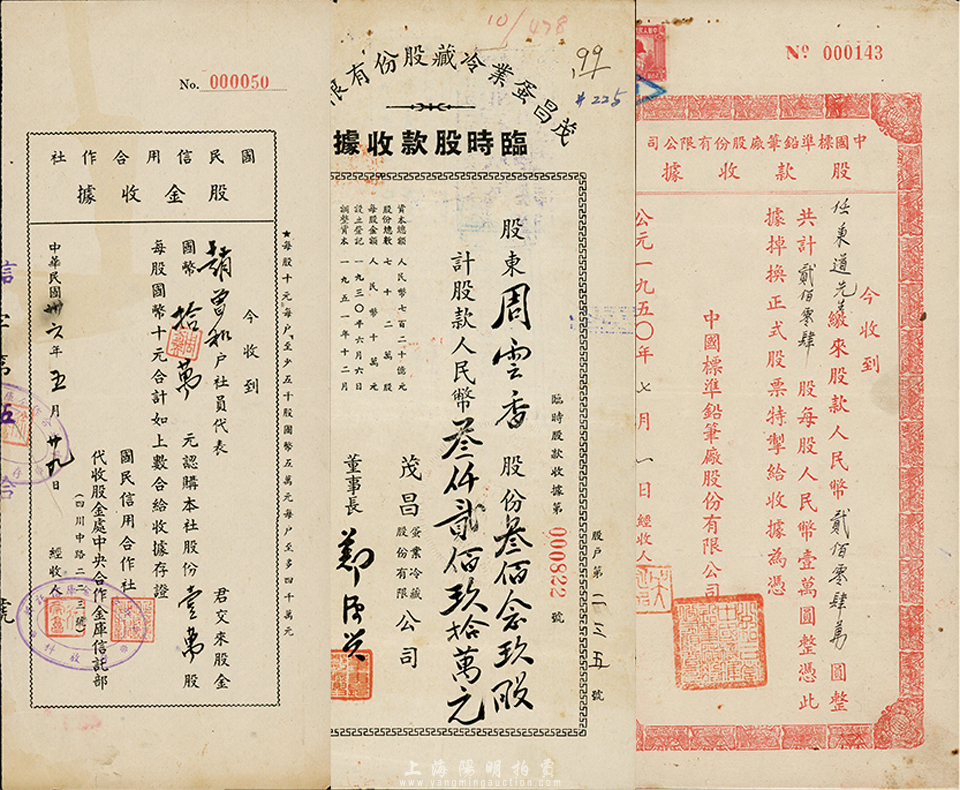 No. 000050
國民信用合作社
股金收據
今收到
趙曾和户社員代表 君交來股金
國幣拾萬元認購本社股份壹萬股
每股國幣十元合計如上數合給收據存證
國民信用合作社
代收股金處中央合作金庫信託部
(四川中路二二三號)
經收人
中華民國卅六年五月廿九日
★每股十元每户至少五千股國幣五萬元每户至多四千萬元
10/478
99
#225
茂昌蛋業冷藏股份有限
臨時股款收據
臨時股款收據第 000822 號
股户第二三五號
股東周雲香股份叁佰念玖股
計股款人民幣叁仟貳佰玖拾萬元
資本總額 人民幣七百二十億元
股份總數 七十二萬股
每股金額 人民幣十萬元
設立登記 一九三〇年六月六日
調整資本 一九五一年十二月
茂昌蛋業冷藏股份有限公司
董事長
No 000143
中國標準鉛筆廠股份有限公司
股款收據
今收到
任東道先生繳來股款人民幣貳佰零肆萬圓整
共計貳佰零肆股每股人民幣壹萬圓整憑此
據掉換正式股票特掣給收據為憑
中國標準鉛筆廠股份有限公司
經收人
公元一九五〇年七月一日
上海陽明拍賣
www.yangmingauction.com